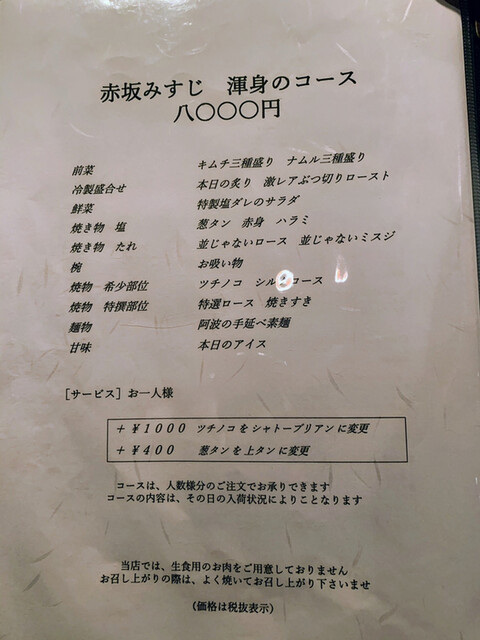 赤坂みすじ　渾身のコース
八〇〇〇円
前菜　キムチ三種盛り　ナムル三種盛り
冷製盛合せ　本日の炙り　激レアぶつ切りロースト
鮮菜　特製塩ダレのサラダ
焼き物　塩　葱タン　赤身　ハラミ
焼き物　たれ　並じゃないロース　並じゃないミスジ
椀　お吸い物
焼物　希少部位　ツチノコ　シル コース
焼物　特撰部位　特選ロース　焼きすき
麺物　阿波の手延べ素麺
甘味　本日のアイス
［サービス］お一人様
＋￥1000　ツチノコをシャトーブリアンに変更
＋￥400　葱タンを上タンに変更
コースは、人数様分のご注文でお承りできます
コースの内容は、その日の入荷状況によりことなります
当店では、生食用のお肉をご用意しておりません
お召し上がりの際は、よく焼いてお召し上がり下さいませ
（価格は税抜表示）